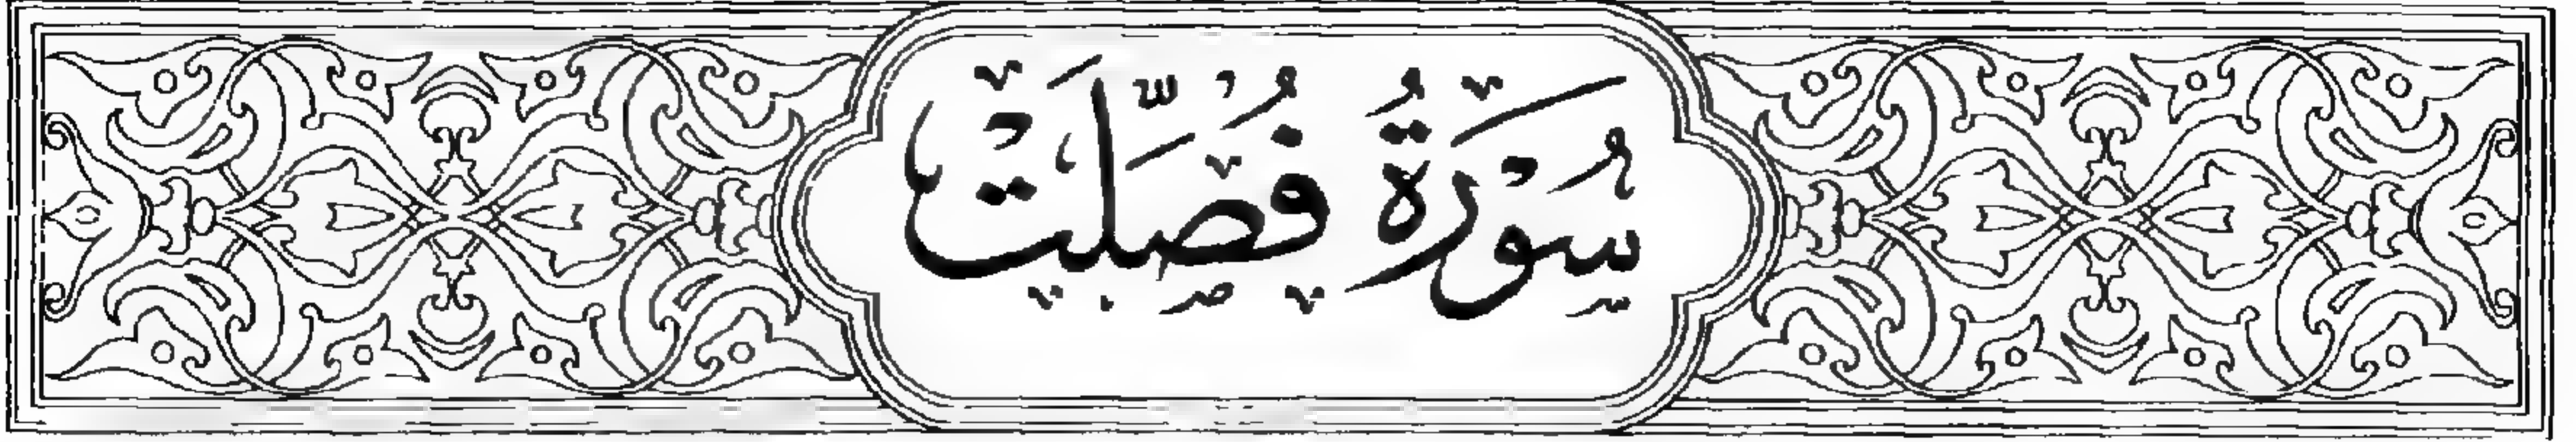 سُوْرَةُ فُصِّلَتْ